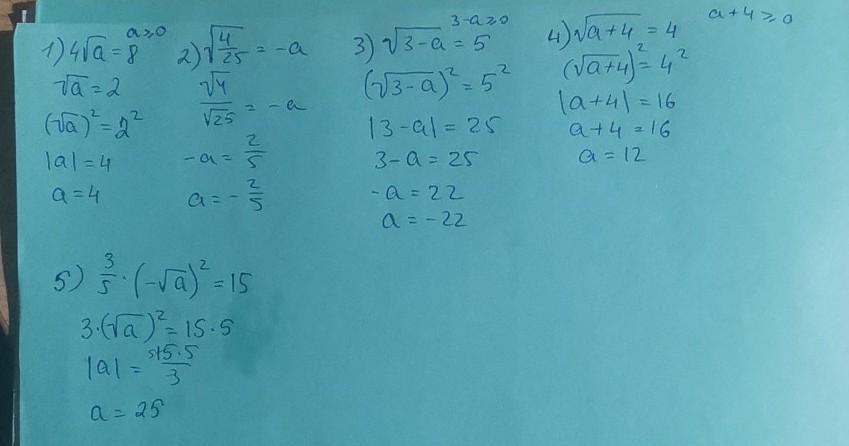 1) 4√a = 8 a ≥ 0
√a = 2
(√a)² = 2²
|a| = 4
a = 4
2) √(4/25) = -a
√4/√25 = -a
-a = 2/5
a = -2/5
3) √(3-a) = 5 3-a ≥ 0
(√(3-a))² = 5²
|3-a| = 25
3-a = 25
-a = 22
a = -22
4) √(a+4) = 4 a+4 ≥ 0
(√(a+4))² = 4²
|a+4| = 16
a+4 = 16
a = 12
5) 3/5 · (-√a)² = 15
3·(√a)² = 15·5
|a| = 15·5/3
a = 25